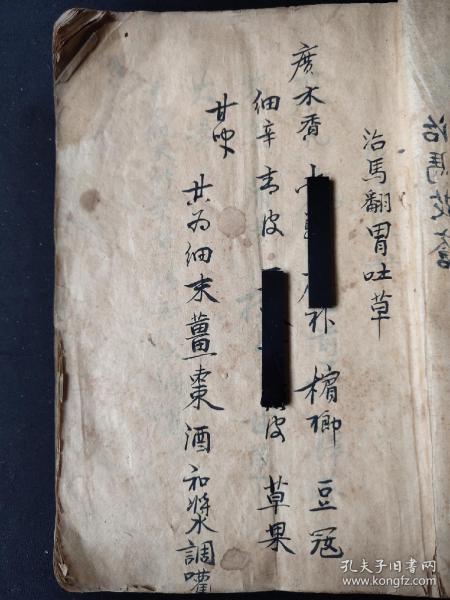 治馬翻胃吐草
廣木香 朴 梹榔 豆冦
細辛 青皮 皮 草果
甘草
共为細末薑棗酒和漿調嚾
治馬
孔夫子旧书网
www.kongfz.com